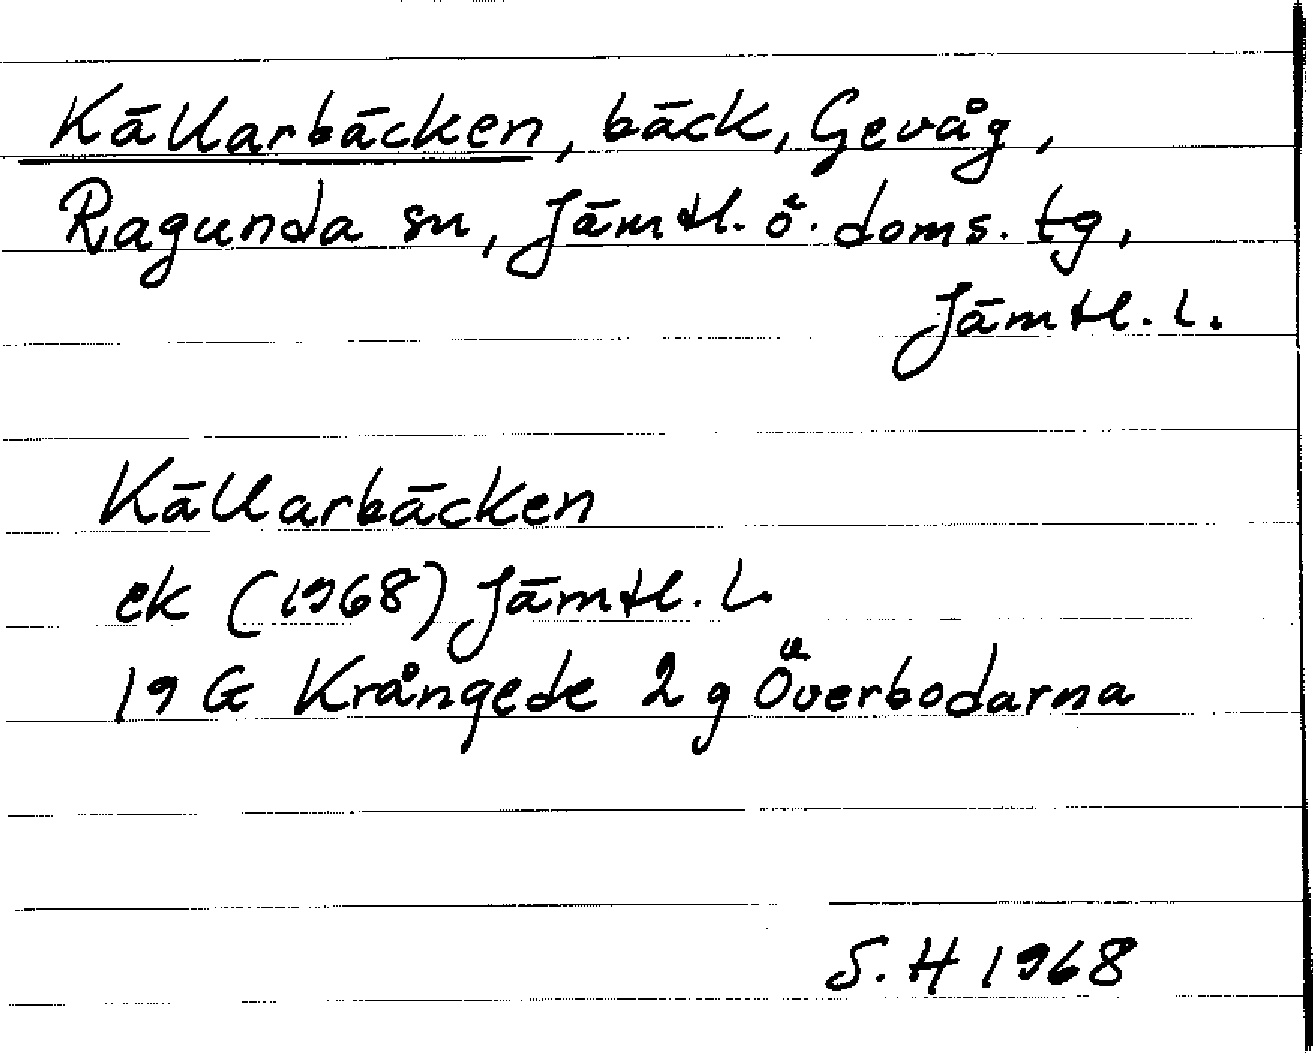 Källarbäcken, bäck, Gevåg,
Ragunda sn, Jämtl. ö. doms. tg,
Jämtl. l.
Källarbäcken
ek (1968) Jämtl. L.
19 G Krångede 2 g Överbodarna
S. H 1968